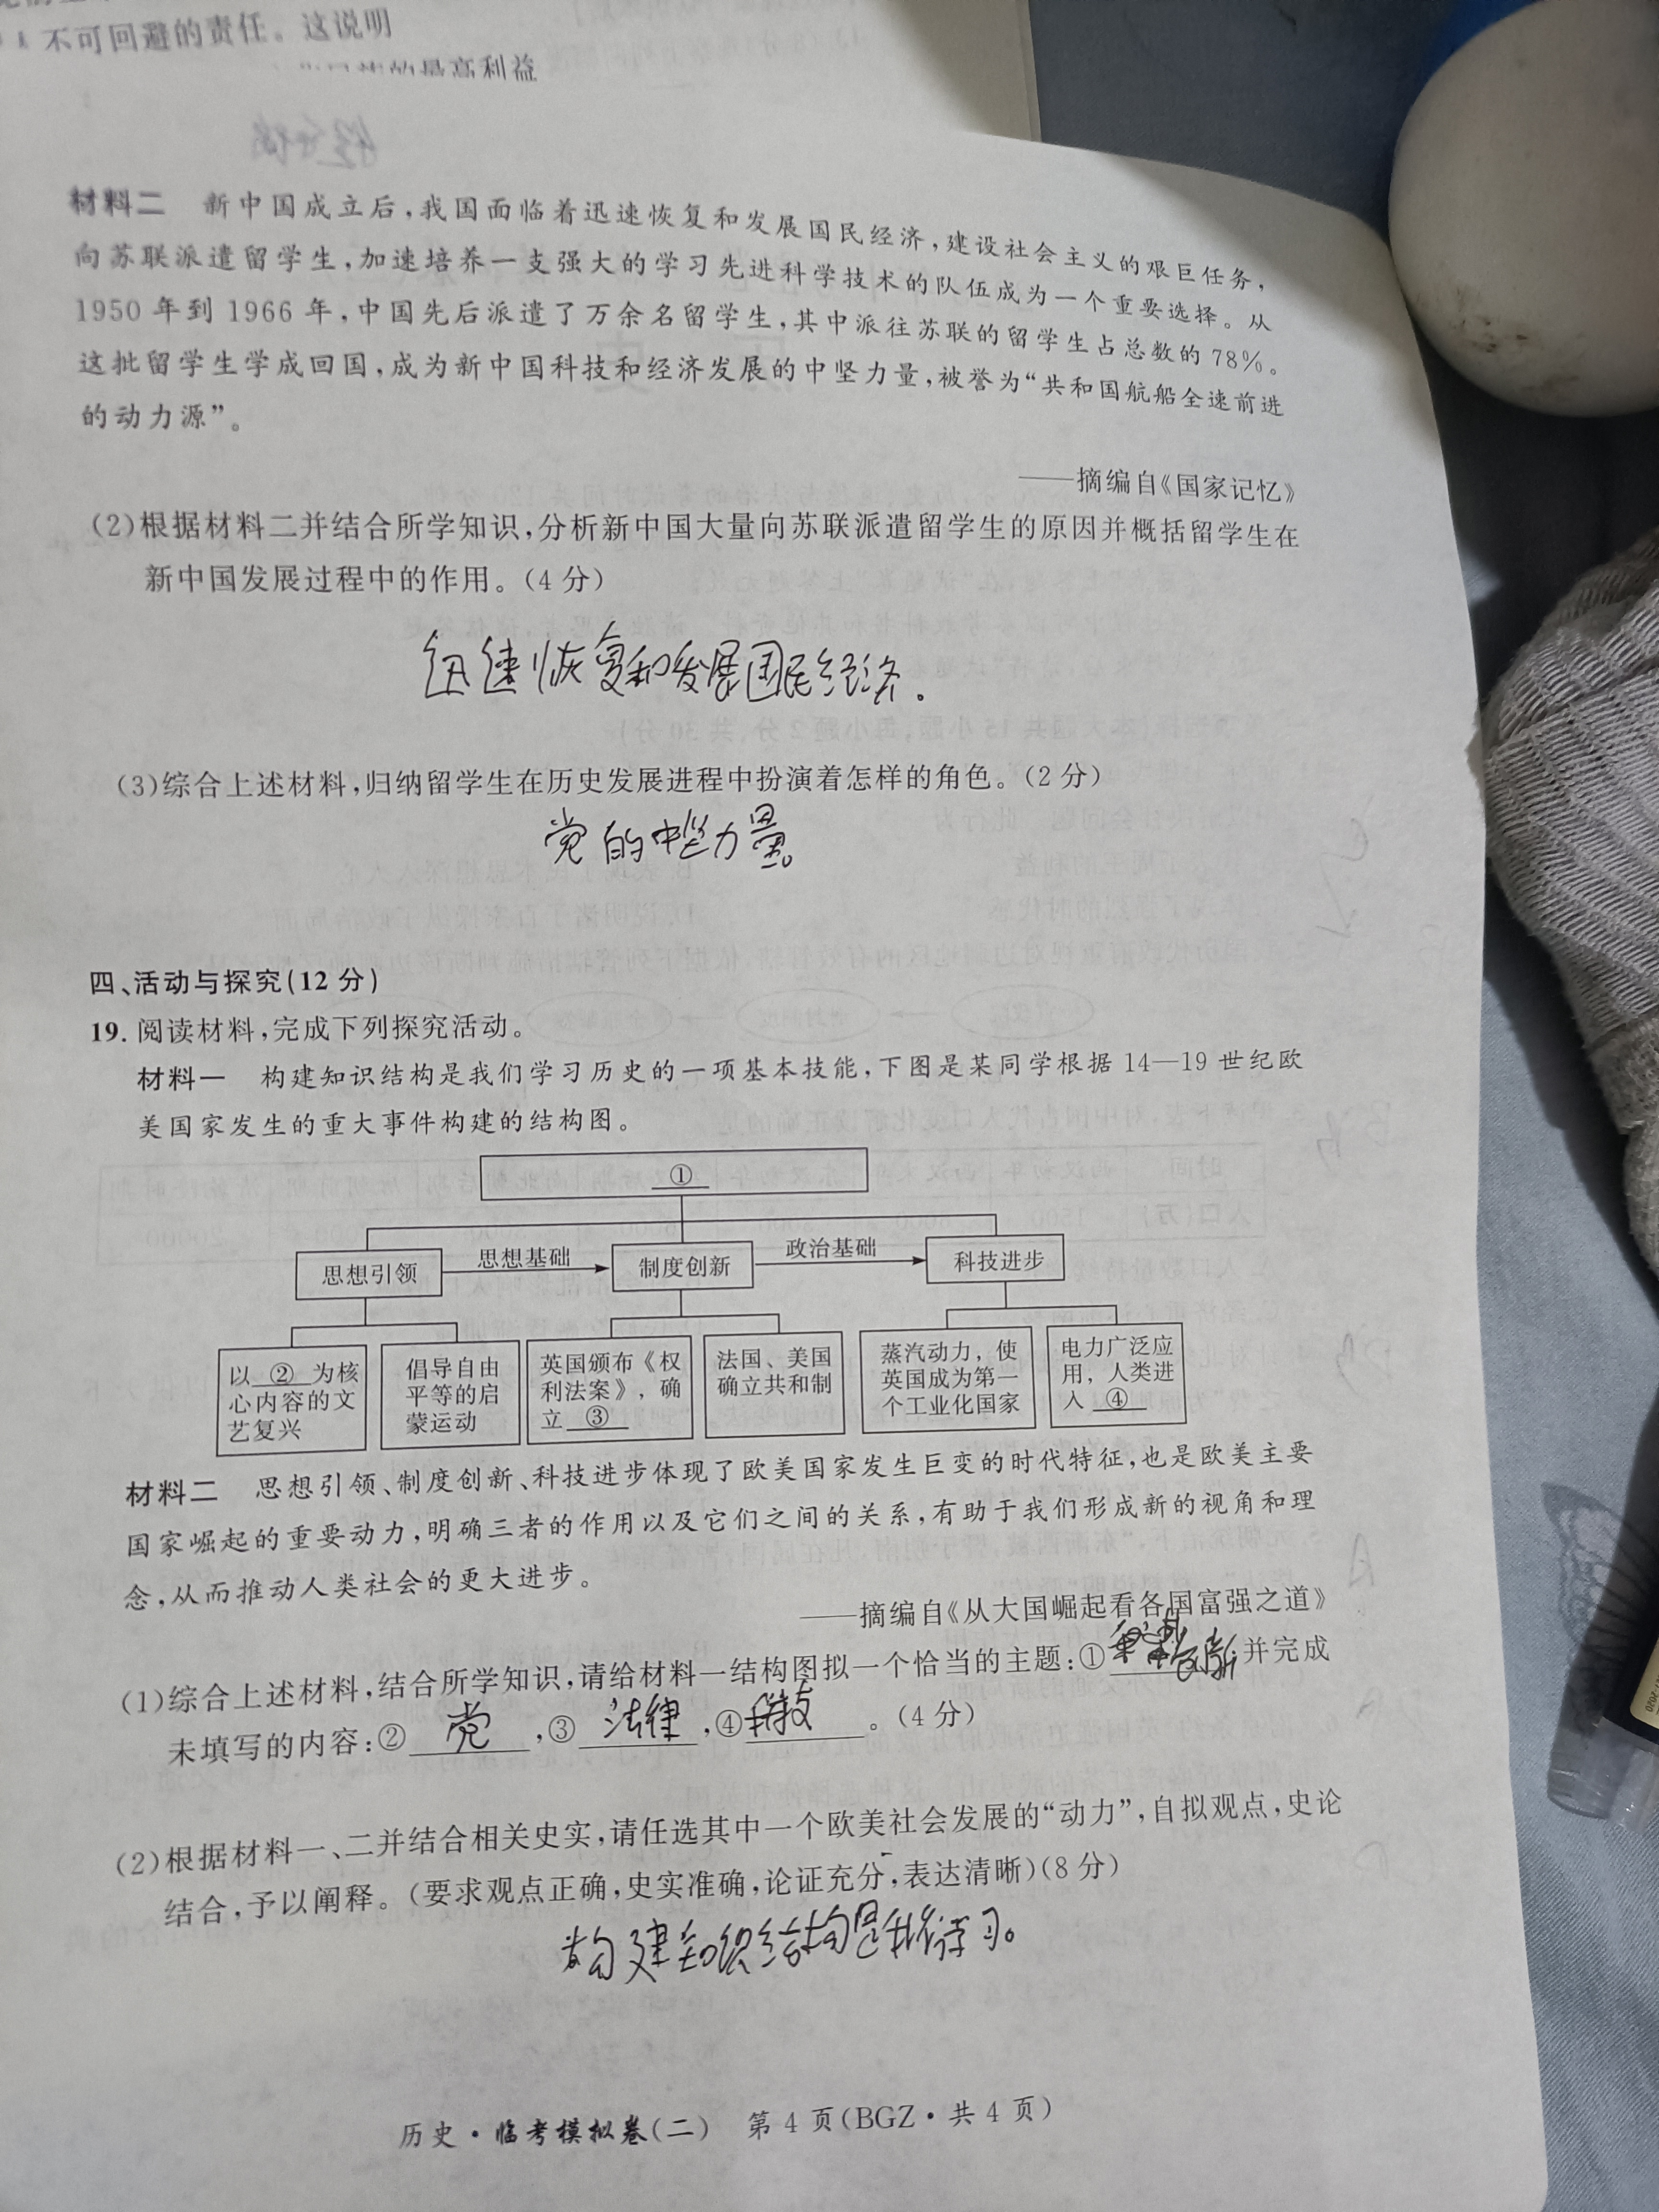 不可回避的责任。这说明
的最高利益
材料二 新中国成立后,我国面临着迅速恢复和发展国民经济,建设社会主义的艰巨任务,
向苏联派遣留学生,加速培养一支强大的学习先进科学技术的队伍成为一个重要选择。从
1950年到1966年,中国先后派遣了万余名留学生,其中派往苏联的留学生占总数的78%。
这批留学生学成回国,成为新中国科技和经济发展的中坚力量,被誉为“共和国航船全速前进
的动力源”。
——摘编自《国家记忆》
(2)根据材料二并结合所学知识,分析新中国大量向苏联派遣留学生的原因并概括留学生在
新中国发展过程中的作用。(4分)
迅速恢复和发展国民经济。
(3)综合上述材料,归纳留学生在历史发展进程中扮演着怎样的角色。(2分)
党的中坚力量。
四、活动与探究(12分)
19. 阅读材料,完成下列探究活动。
材料一 构建知识结构是我们学习历史的一项基本技能,下图是某同学根据14—19世纪欧
美国家发生的重大事件构建的结构图。
①
思想引领 思想基础 制度创新 政治基础 科技进步
以 ② 为核
心内容的文
艺复兴
倡导自由
平等的启
蒙运动
英国颁布《权
利法案》,确
立 ③
法国、美国
确立共和制
蒸汽动力,使
英国成为第一
个工业化国家
电力广泛应
用,人类进
入 ④
材料二 思想引领、制度创新、科技进步体现了欧美国家发生巨变的时代特征,也是欧美主要
国家崛起的重要动力,明确三者的作用以及它们之间的关系,有助于我们形成新的视角和理
念,从而推动人类社会的更大进步。
——摘编自《从大国崛起看各国富强之道》
(1)综合上述材料,结合所学知识,请给材料一结构图拟一个恰当的主题:① 创新,并完成
未填写的内容:② 党 ,③ 法律 ,④ 科技 。(4分)
(2)根据材料一、二并结合相关史实,请任选其中一个欧美社会发展的“动力”,自拟观点,史论
结合,予以阐释。(要求观点正确,史实准确,论证充分,表达清晰)(8分)
构建知识结构是我们学习。
历史·临考模拟卷(二) 第4页(BGZ·共4页)